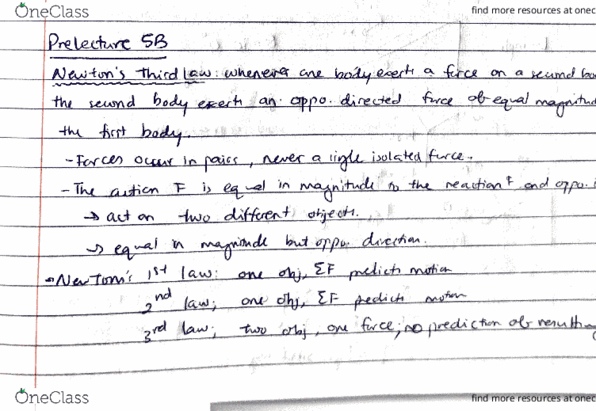 OneClass
find more resources at onec
Prelecture 5B
Newton's Third Law: whenever one body exerts a force on a second bo
the second body exerts an oppo. directed force of equal magnitud
the first body.
- Forces occur in pairs, never a single isolated force.
- The action F is equal in magnitude to the reaction F and oppo. i
→ act on two different objects.
→ equal in magnitude but oppo. direction.
Newton's 1st law: one obj, ΣF predicts motion
2nd law; one obj, ΣF predicts motion
3rd law; two obj, one force; no prediction of result
OneClass
find more resources at onec